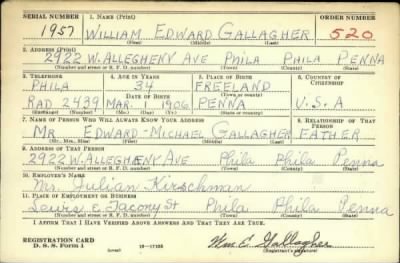 SERIAL NUMBER 1. NAME (Print) ORDER NUMBER
1957 WILLIAM EDWARD GALLAGHER 520
(First) (Middle) (Last)
2. ADDRESS (Print)
2922 W. ALLEGHENY AVE PHILA PHILA PENNA
(Number and street or R. F. D. number) (Town) (County) (State)
3. TELEPHONE 4. AGE IN YEARS 5. PLACE OF BIRTH 6. COUNTRY OF CITIZENSHIP
PHILA 34 FREELAND
DATE OF BIRTH (Town or county)
RAD 2439 MAR. 1 1906 PENNA U.S.A
(Exchange) (Number) (Mo.) (Day) (Yr.) (State or country)
7. NAME OF PERSON WHO WILL ALWAYS KNOW YOUR ADDRESS 8. RELATIONSHIP OF THAT PERSON
MR EDWARD - MICHAEL GALLAGHER FATHER
(Mr., Mrs., Miss) (First) (Middle) (Last)
9. ADDRESS OF THAT PERSON
2922 W. ALLEGHENY AVE Phila Phila Penna
(Number and street or R. F. D. number) (Town) (County) (State)
10. EMPLOYER'S NAME
Mr. Julian Kirschman
11. PLACE OF EMPLOYMENT OR BUSINESS
Lewis & Tacony St Phila Phila Penna
(Number and street or R. F. D. number) (Town) (County) (State)
I AFFIRM THAT I HAVE VERIFIED ABOVE ANSWERS AND THAT THEY ARE TRUE.
REGISTRATION CARD
D. S. S. Form 1 (over) 16—17105 Wm. E. Gallagher
(Registrant's signature)